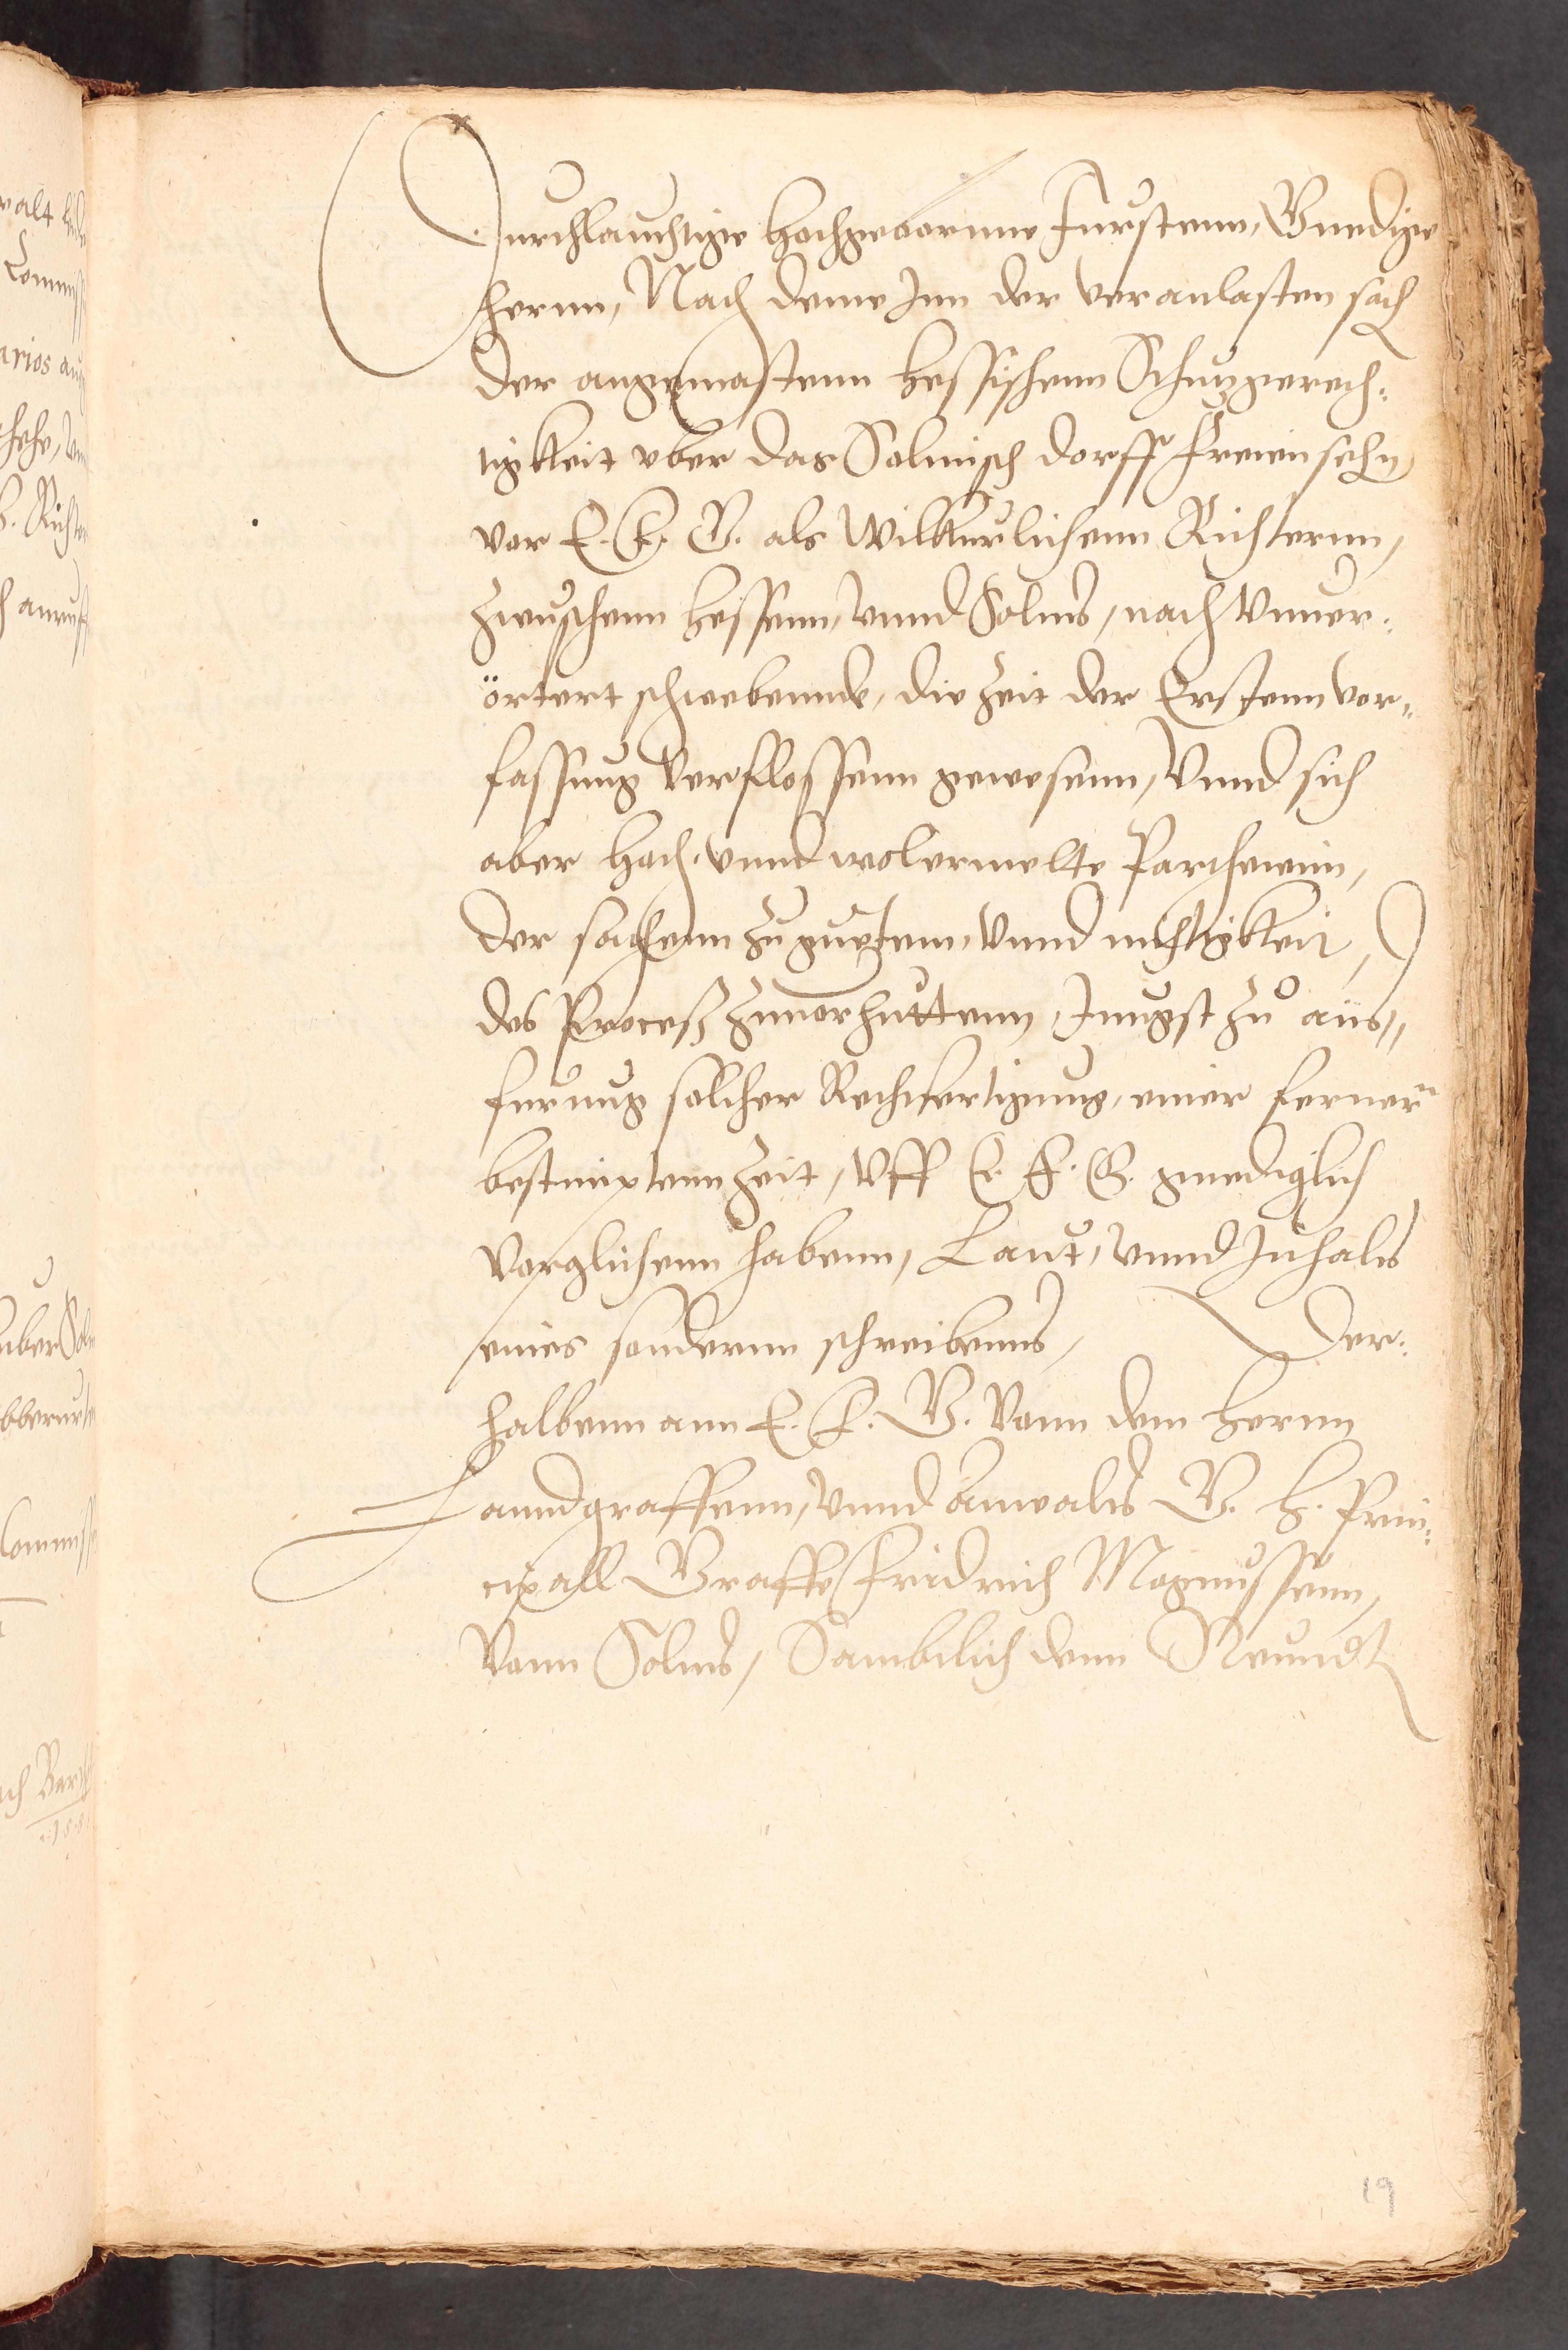 Durchlauchtige Hochgebornne Furstenn, Gnedige
Hernn, Nach deme Inn der veranlasten sach
der angemastenn Hessischenn Schutzgerech-
tigkeit vber das Solmisch dorff Freiensehn,
vor E. F. G. als Wilkurlichenn Richternn,
Zwuschenn Hessenn, Vnnd Solms, nach Vnuer-
örtert schwebennde, die Zeit der Erstenn vor-
fassung Verflossenn gewesenn, Vnnd sich
aber Hoch- vnnd wolermelte Partheienn,
der sachenn zu guetem, Vnnd nichtigkeit,
des Proceß zuuorhuttenn, Jungst zu aus-
furung solcher Rechtfertigung, einer ferner
bestimptenn Zeit, Vff E. F. G. gnediglich
Verglichenn habenn, Laut, vnnd Inhalts
eines sondernn schreibenns, Der-
halbenn ann E. F. G. Vonn dem Hernn
Lanndgraffenn, Vnnd Anwalts G. H. Prin-
cipall Graffe Fridrich Magnussenn,
Vonn Solms, Samblich denn Neundt
19
valt
Commiss
arios
Richter
anruff
Commiss